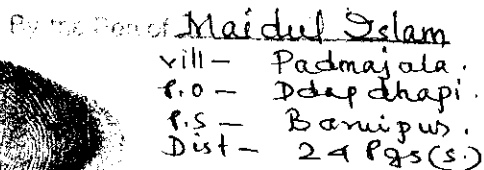 By the Pen of Maidul Islam
vill - Padmajala.
P.O - Ddapdhapi.
P.S - Baruipur.
Dist - 24 Pgs(S.)